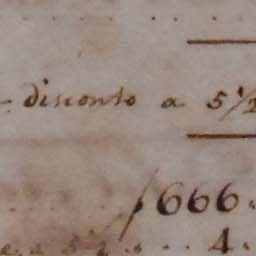 disconto a 5 1/2
666.
4.